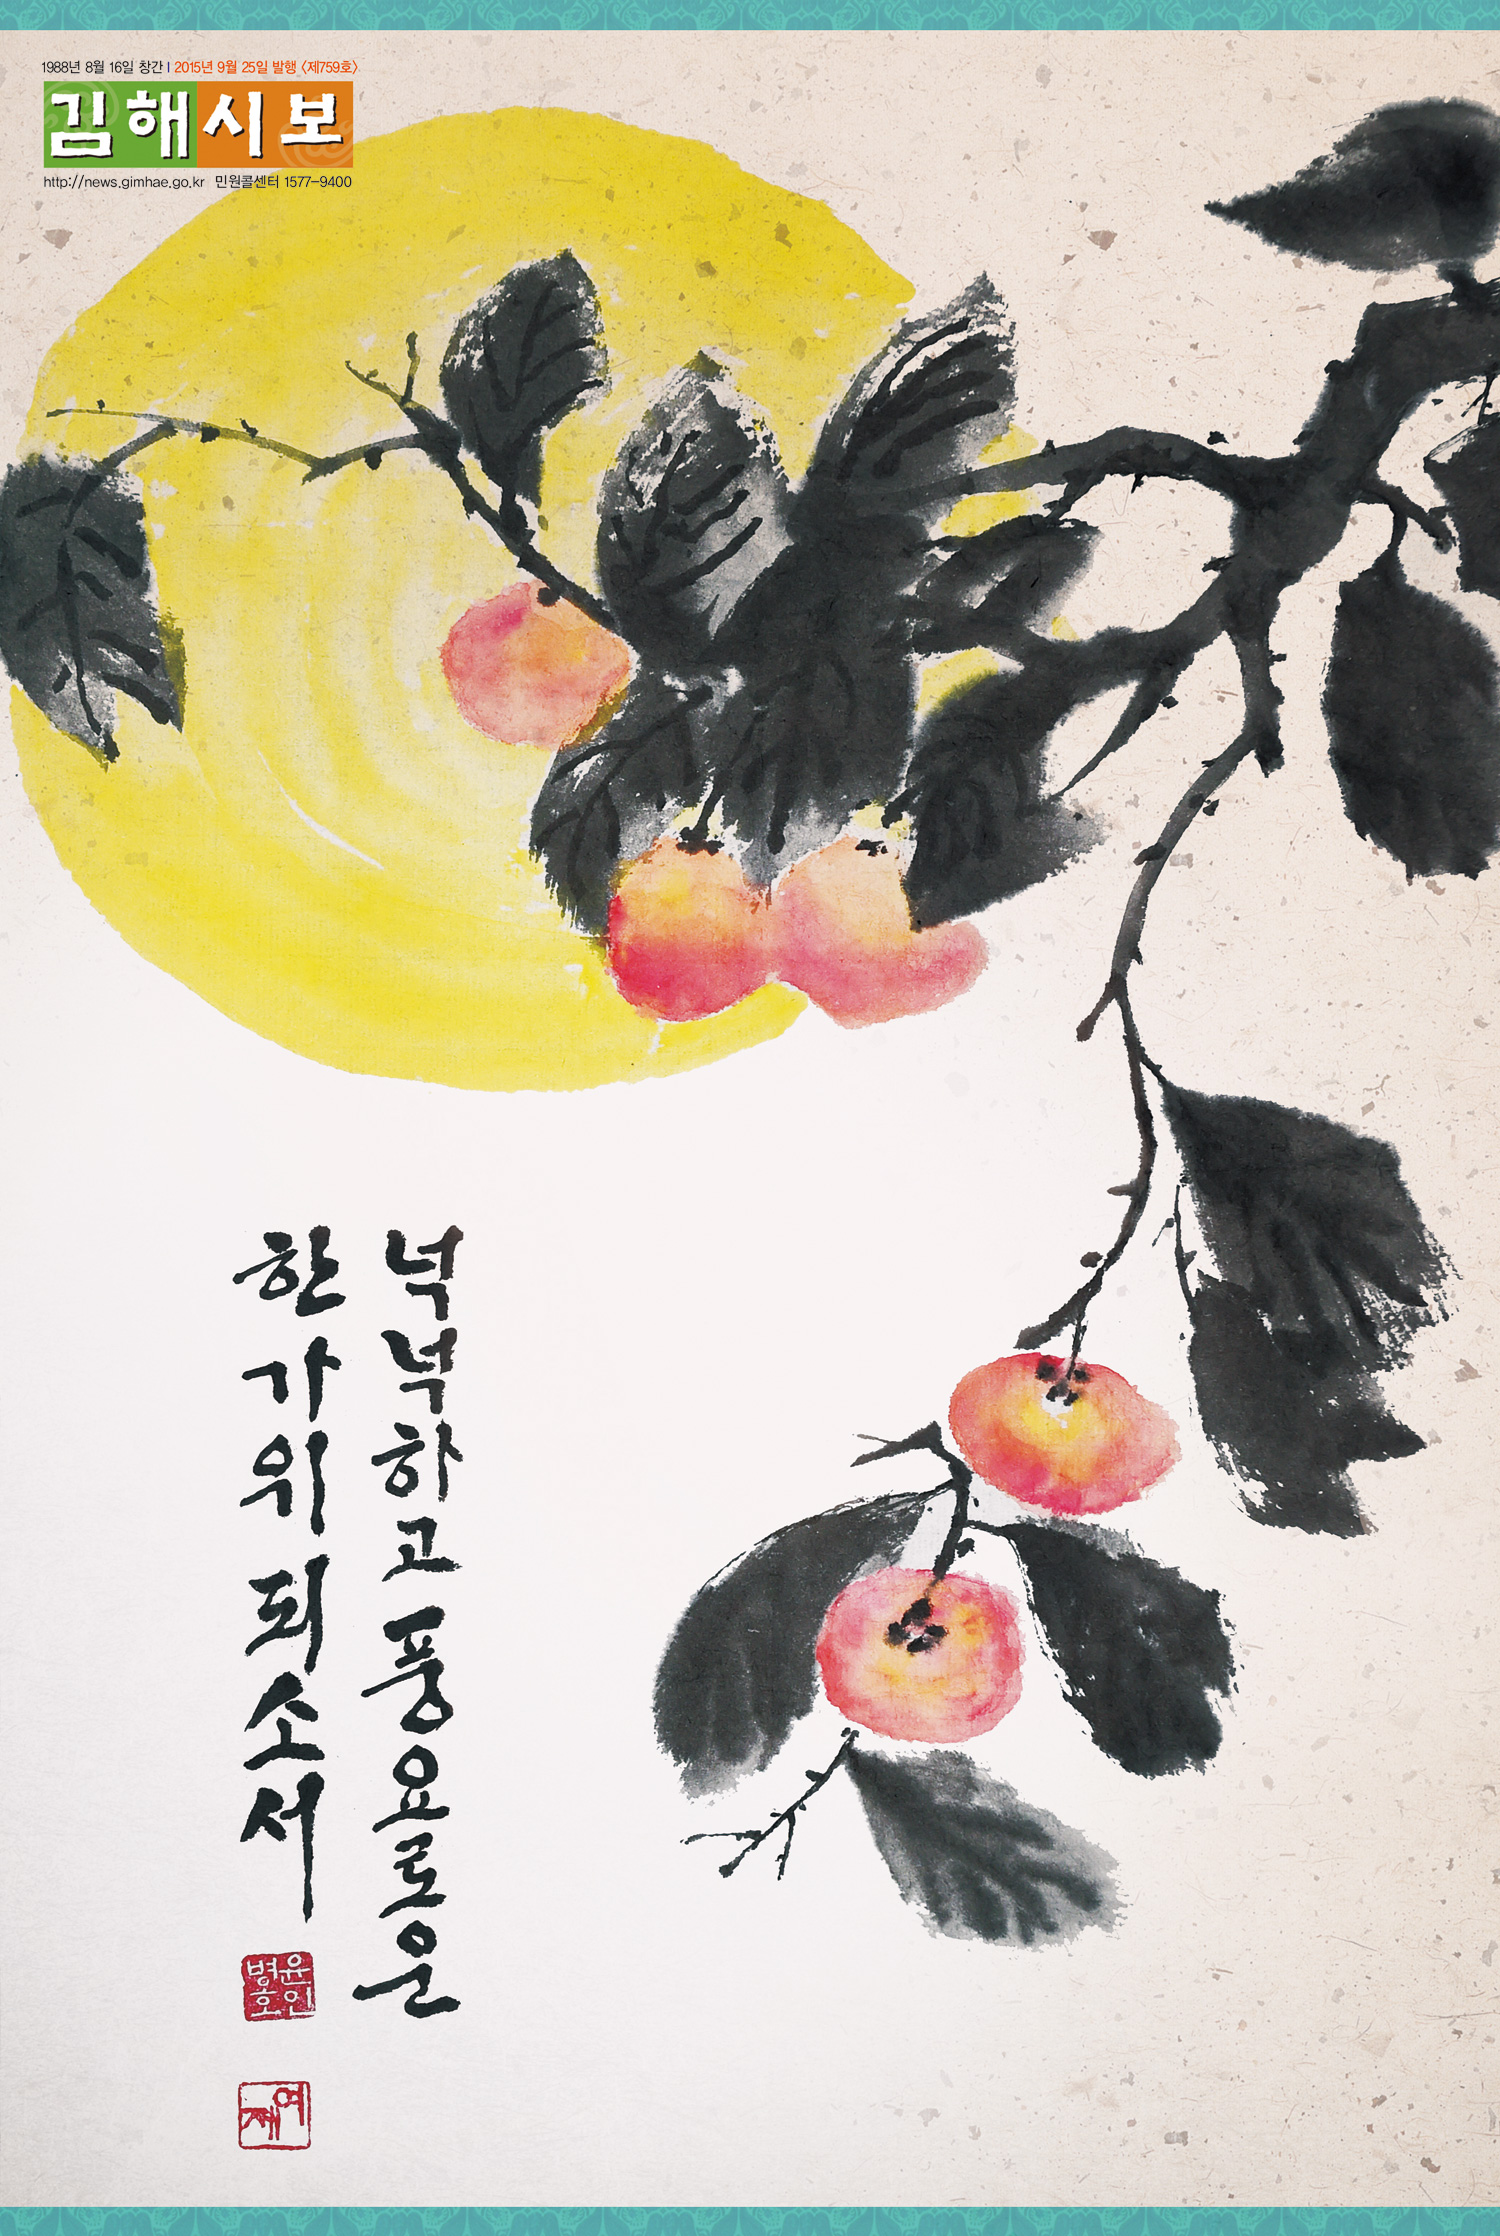 1988년 8월 16일 창간 | 2015년 9월 25일 발행 〈제759호〉
김해시보
http://news.gimhae.go.kr 민원콜센터 1577-9400
넉넉하고 풍요로운
한가위 되소서
윤인
병호
여
재